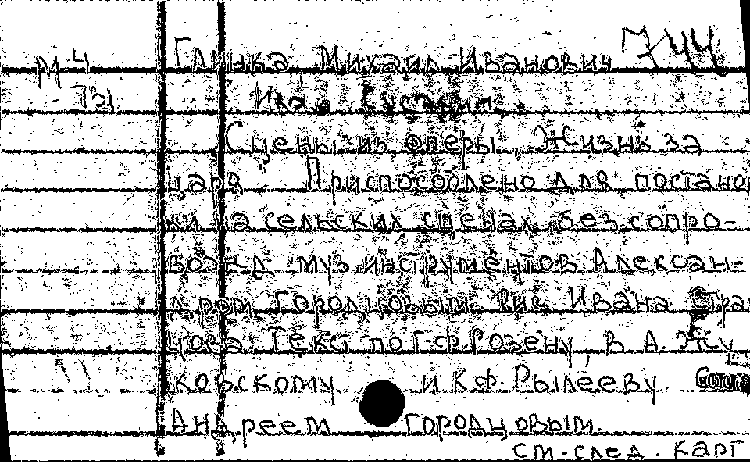 Глинка, Михаил Иванович 744
М 4
731
Иван Сусанин.
Сцены из оперы Жизнь за
царя Приспособлено для постанов
ки на сельских сценах без сопро-
вожд муз. инструментов Алексан-
дром Городцовым. Ивана
Текст по Г.Ф Розену, В А. Жу
ковскому и К.Ф Рылееву.
Андреем Городцовым.
см. след. карт